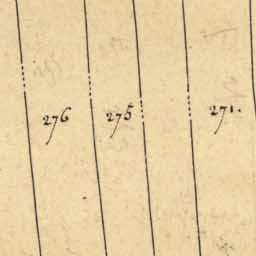 276 275 271.